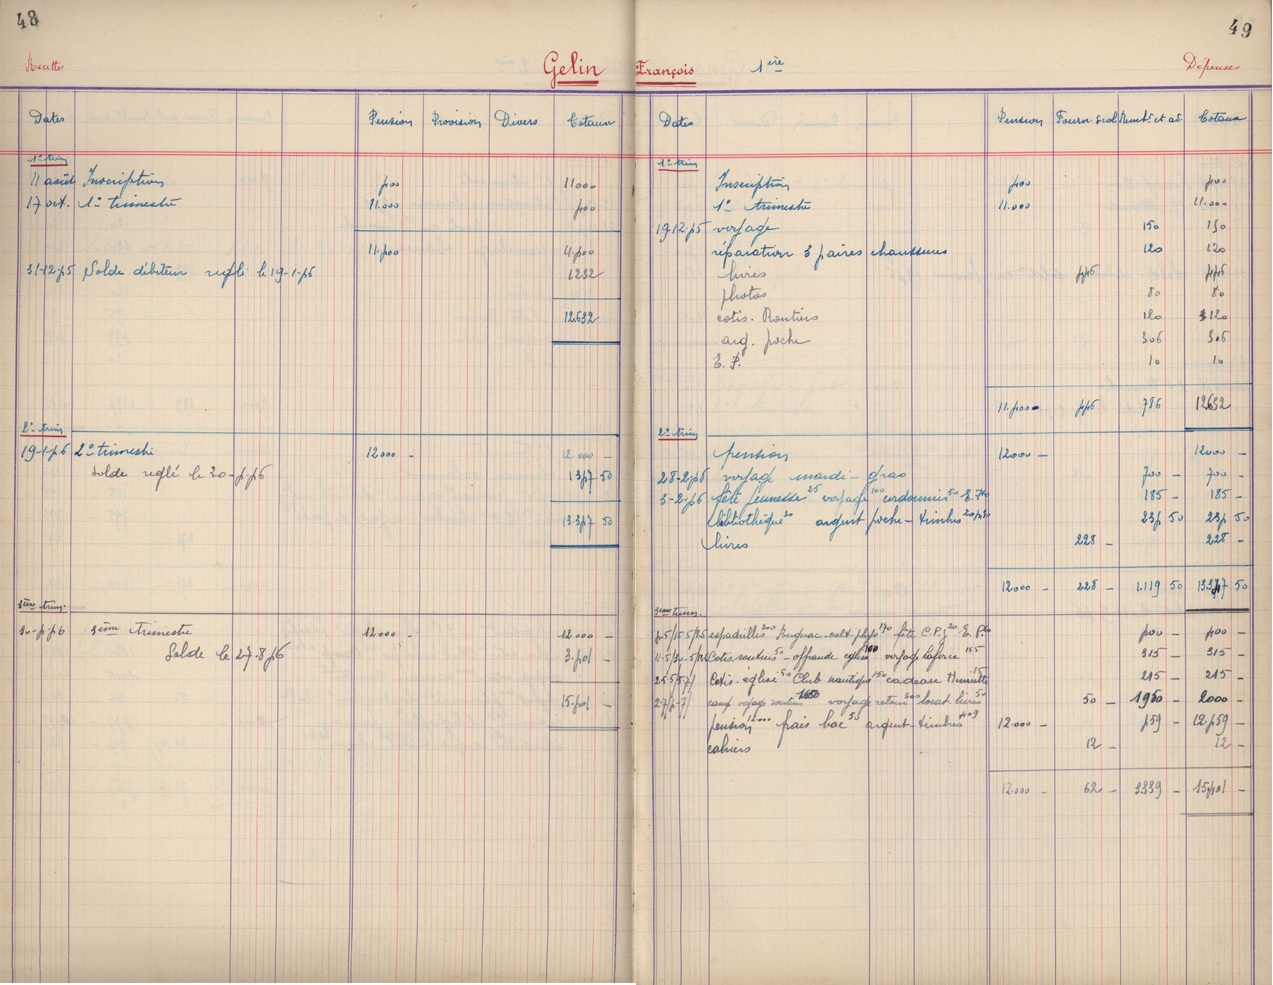 48
49
Recettes
Gelin François 1ère
Dépenses
Dates Pension Provision Divers Totaux
1er trim
11 août Inscription 400 11000
17 oct. 1er trimestre 11.000 400
11.400 11.400
31-12-45 Solde débiteur reglé le 19-1-46 1232
12632
2e trim
19-1-46 2e trimestre 12000 - 12000 -
solde reglé le 30-4-46 1347 50
13.347 50
3ème trim.
30-4-46 3ème trimestre 12.000 - 12.000 -
Solde le 27-8-46 3.401 -
15.401 -
Dates Pension Fourn. scol Remb. et av. Totaux
1er trim
Inscription 400 400
1er trimestre 11.000 11.000
19.12.45 voyage 150 150
réparation 3 paires chaussures 120 120
livres 446 446
photos 80 80
cotis. Routiers 120 120
arg. poche 306 306
E. P. 10 10
11.400 - 446 786 12632
2e trim
pension 12000 - 12000 -
28-2-46 voyage mardi-gras 700 - 700 -
3-2-46 fête jeunesse 25 voyage 100 cordonnier 50 185 - 185 -
bibliothèque 30 argent poche - timbres 234 50 234 50
livres 228 - 228 -
12000 - 228 - 1.119 50 13347 50
3ème trim.
espadrilles 200 fête 400 - 400 -
Cotis. routiers 50 - offrande église 100 voyage Laforce 165 315 - 315 -
Cotis. église 50 Club nautique 150 cadeau 15 215 - 215 -
camp voyage routiers 1650 voyage retour 300 locat livres 50 50 - 1950 - 2000 -
pension 12000 frais bac 50 argent-timbres 409 12.000 - 459 - 12.459 -
cahiers 12 - 12 -
12.000 - 62 - 3339 - 15401 -